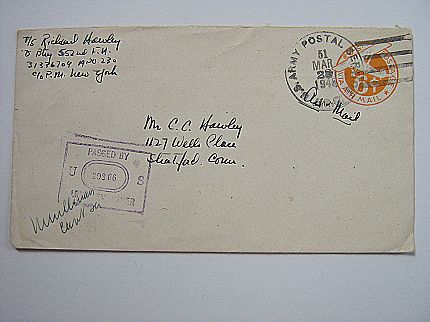 T/5 Richard Hawley
B Btry 552nd F.A.
31376709 APO 230
c/o P.M. New York
U.S. ARMY POSTAL SERVICE
51
MAR
194
VIA AIR MAIL
6¢
Air Mail
Mr C. C. Hawley
1127 Wells Place
Stratford. Conn.
PASSED BY
U S
20306
ARMY EXAMINER